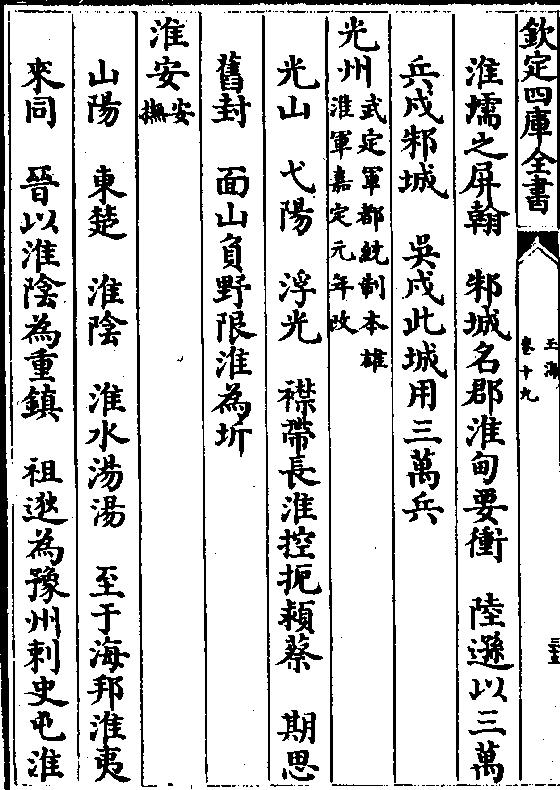 欽定四庫全書
卷十九
淮壖之屏翰 邾城名郡淮甸要衝 陸遜以三萬
兵戍邾城 吳戍此城用三萬兵
光州
武定軍都統制本雄
淮軍嘉定元年改
光山 弋陽 浮光 襟帶長淮控扼潁蔡 期思
舊封 面山負野限淮為圻
淮安
安
撫
山陽 東楚 淮陰 淮水湯湯 至于海邦淮夷
來同 晉以淮陰為重鎮 祖逖為豫州刺史屯淮